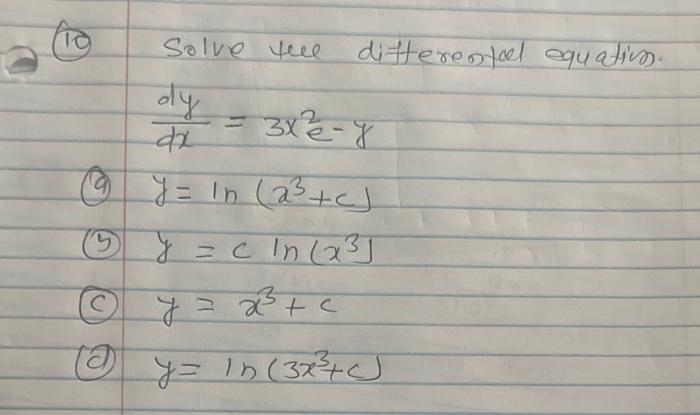 (10) Solve the differential equation.
dy/dx = 3x²e - y
(a) y = ln (x³+c)
(b) y = c ln(x³)
(c) y = x³ + c
(d) y = ln(3x³+c)